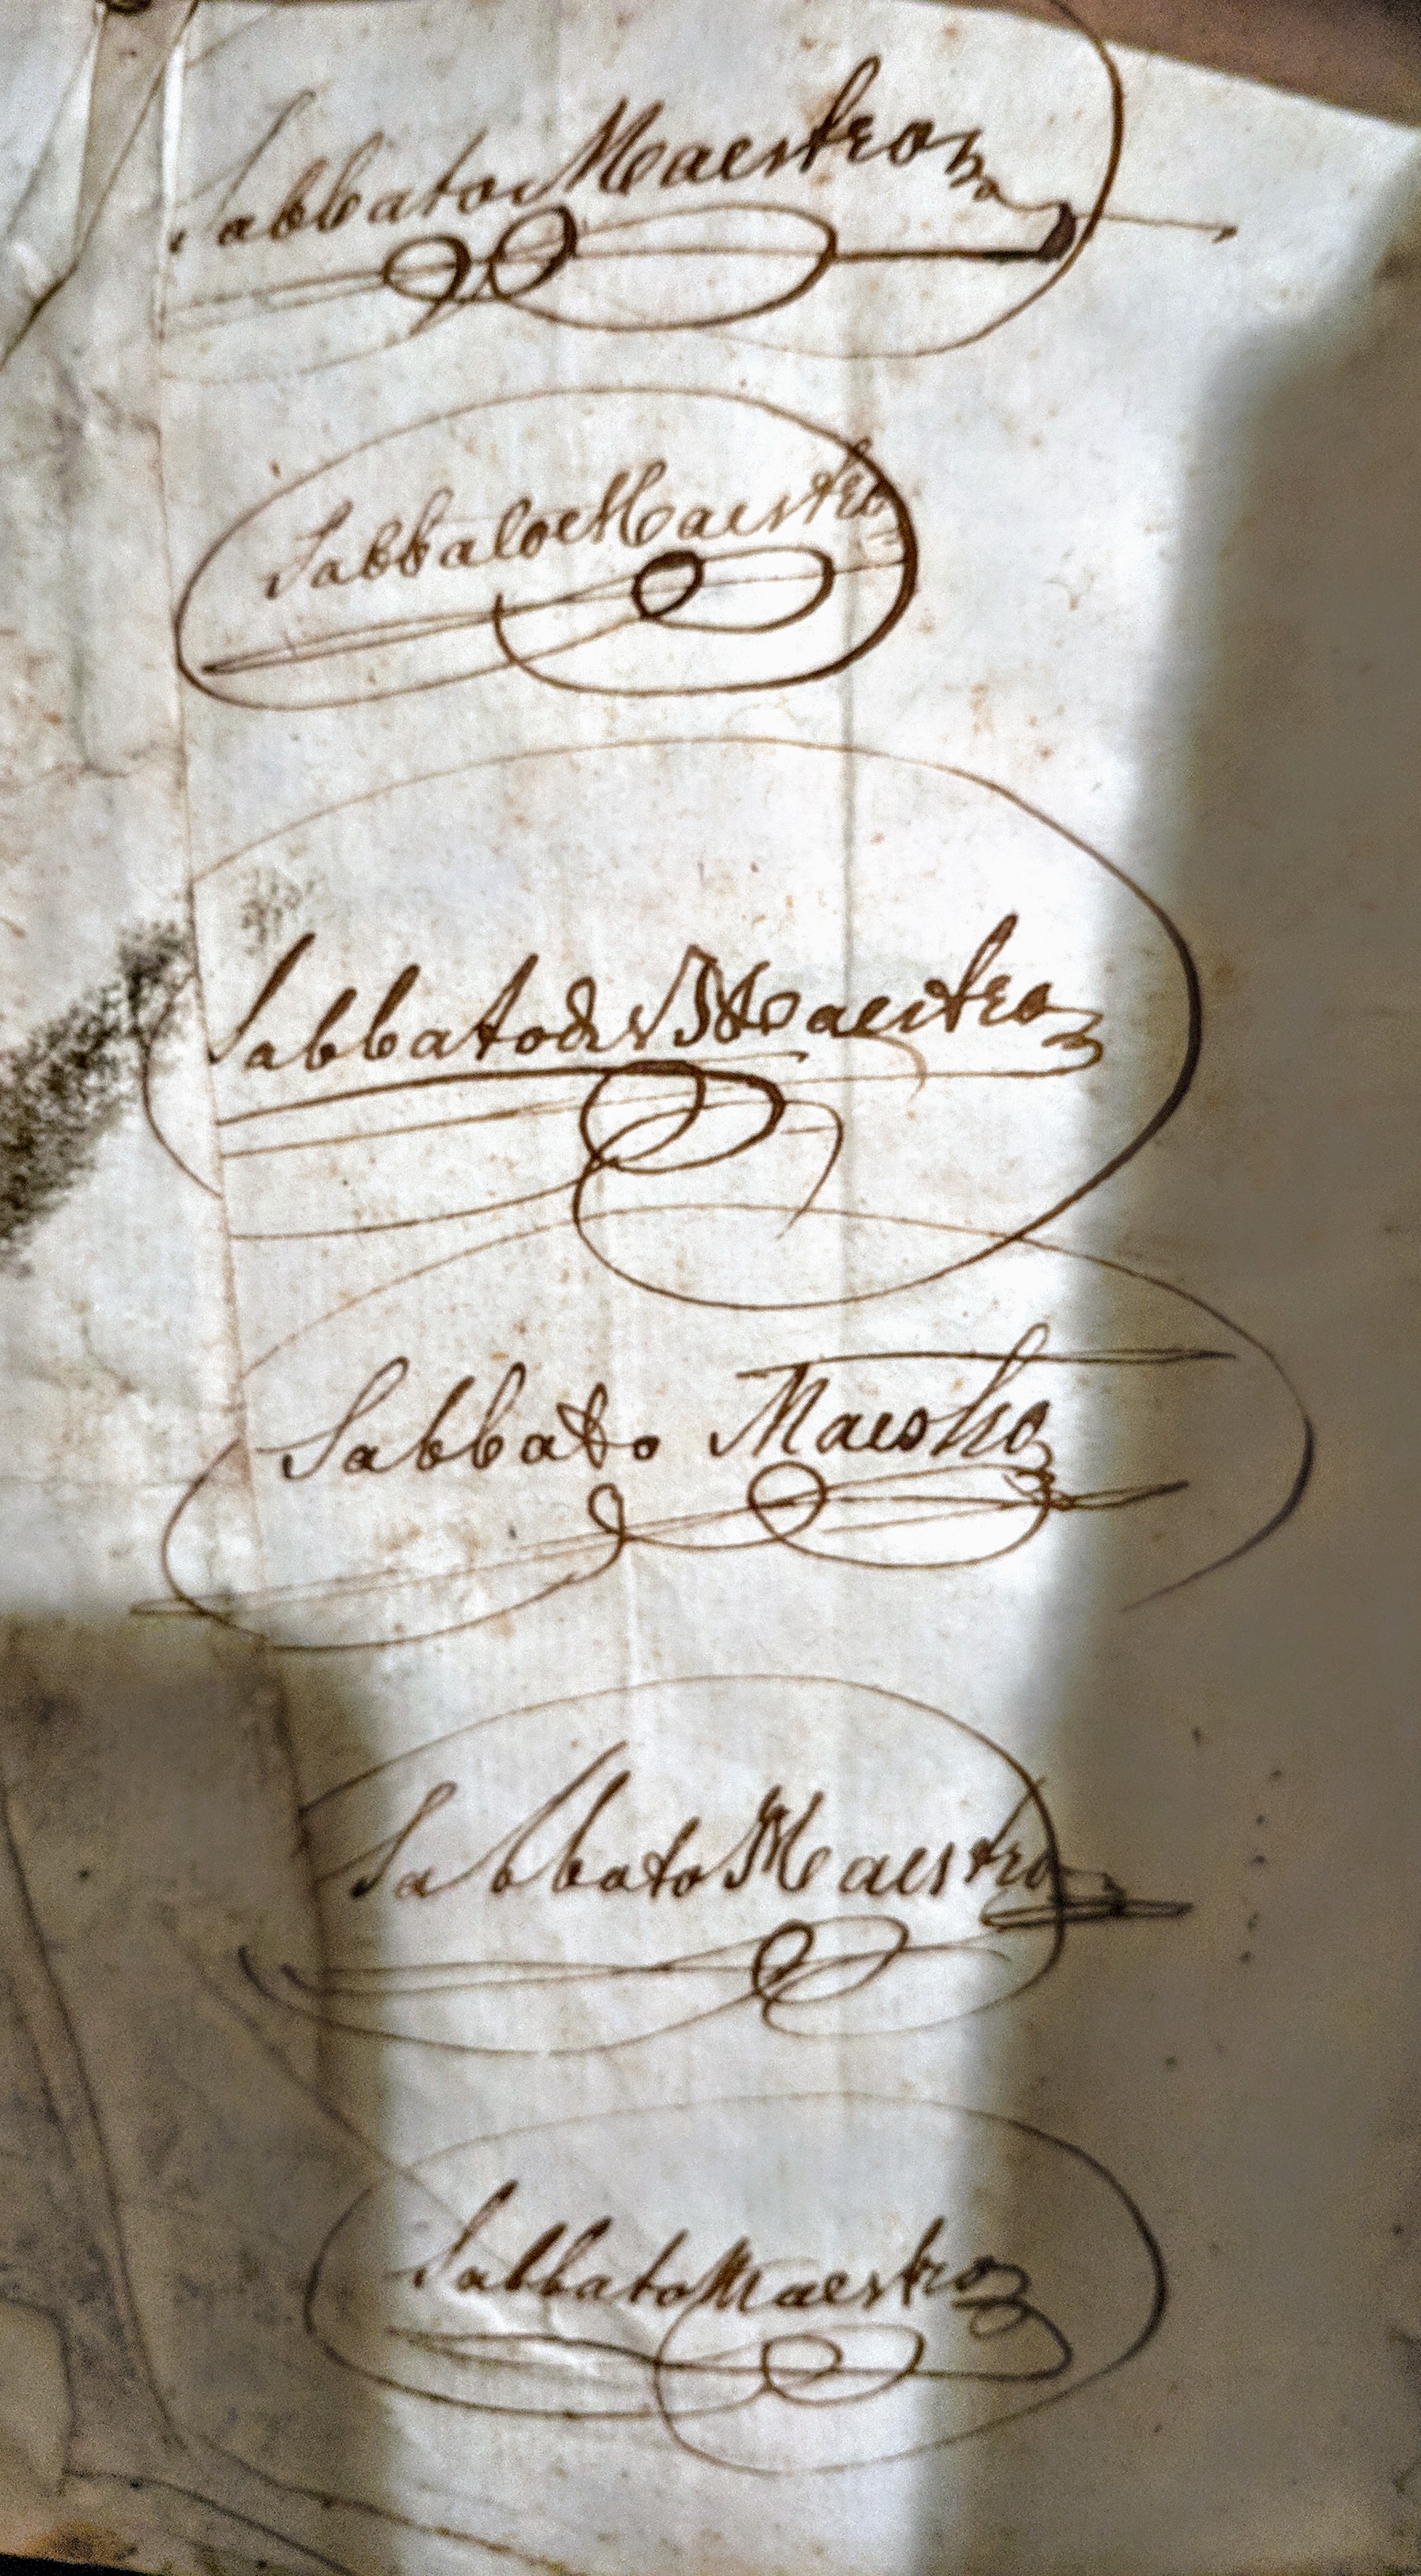 Sabbato Maestro
Sabbato Maestro
Sabbato de Maestro
Sabbato Maestro
Sabbato Maestro
Sabbato Maestro